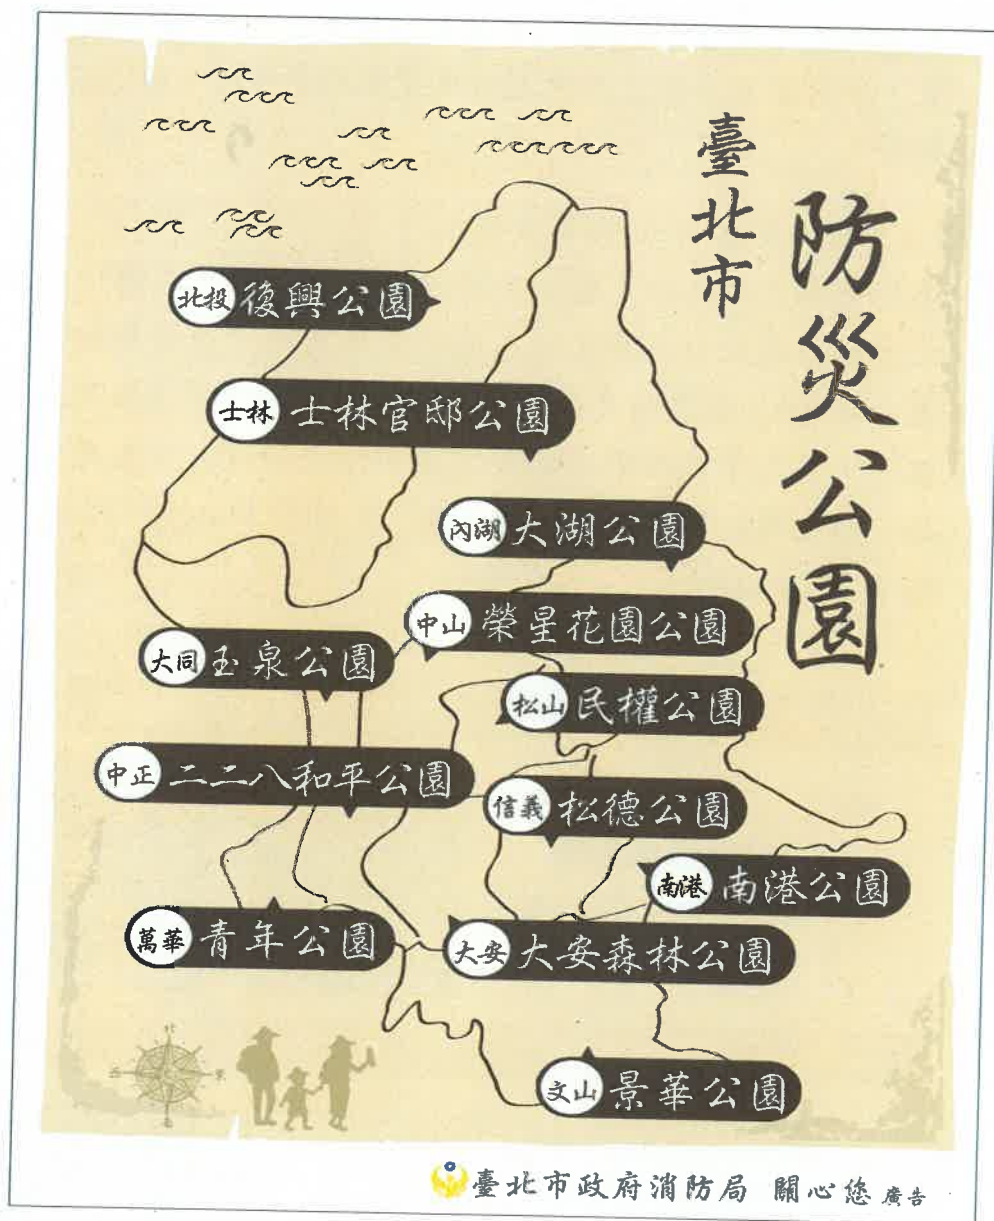 臺北市
防災公園
北投 復興公園
士林 士林官邸公園
內湖 大湖公園
中山 榮星花園公園
大同 玉泉公園
松山 民權公園
中正 二二八和平公園
信義 松德公園
南港 南港公園
萬華 青年公園
大安 大安森林公園
文山 景華公園
北
西
東
臺北市政府消防局 關心您 廣告